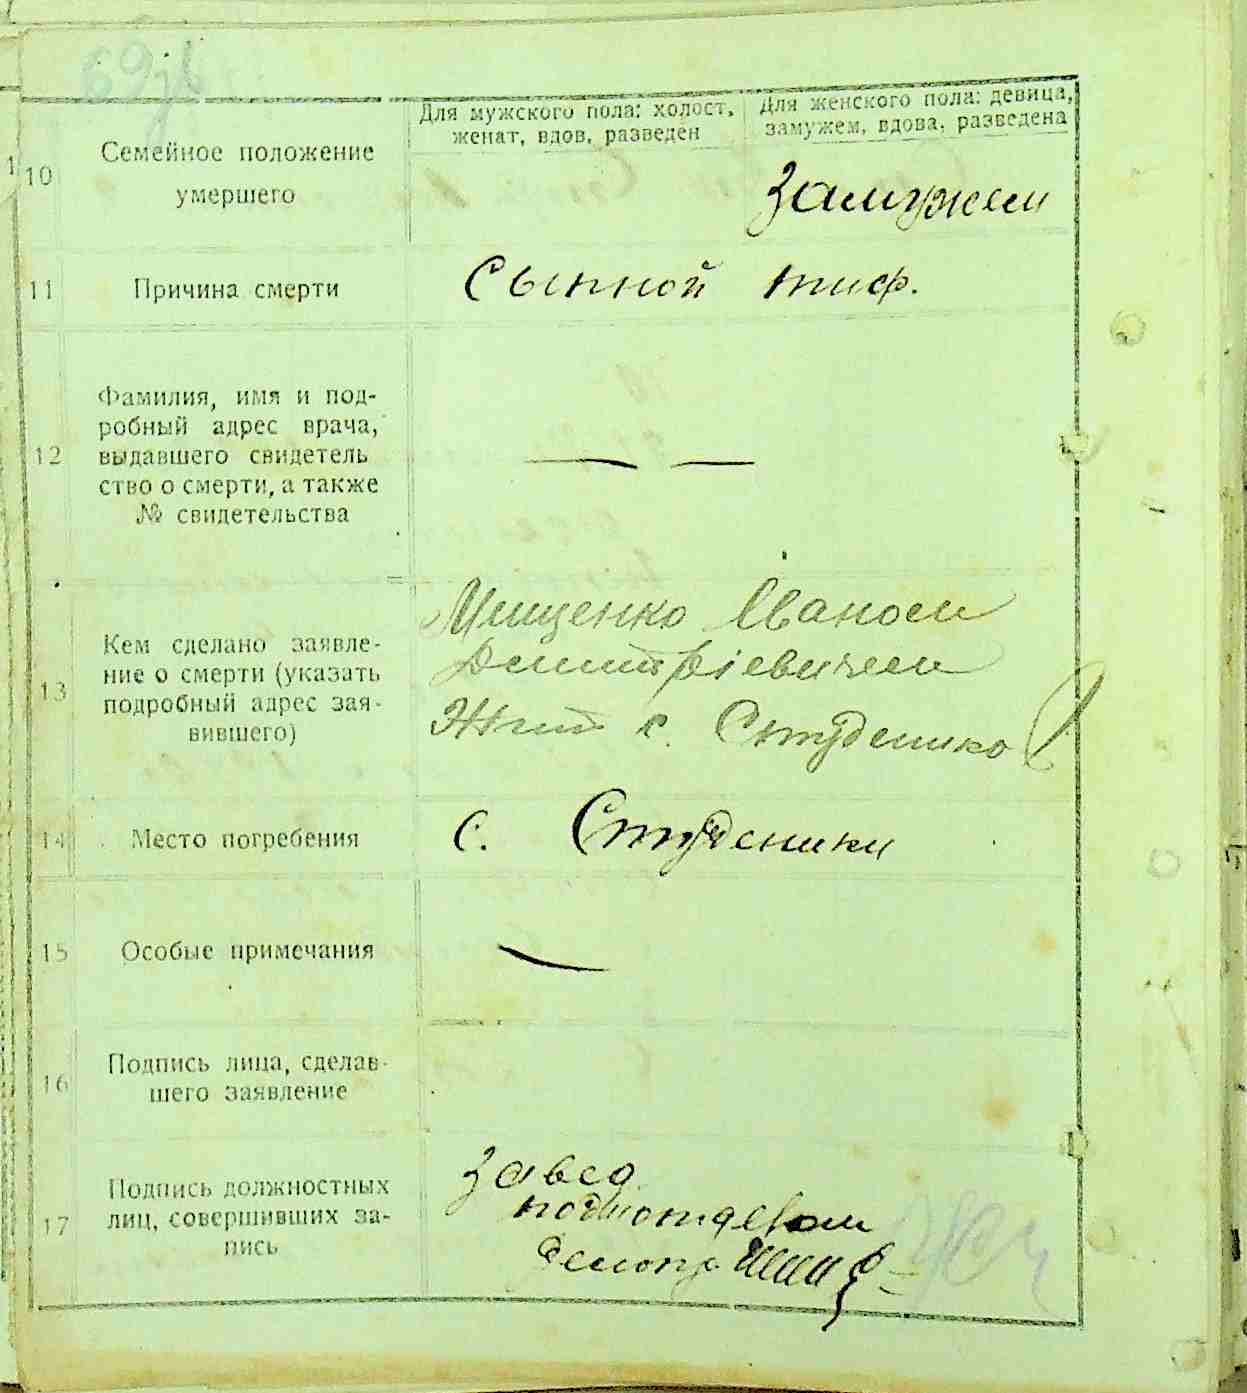 Для мужского пола: холост,
женат, вдов, разведен
Для женского пола: девица,
замужем, вдова, разведена
10
Семейное положение
умершего
замужем
11
Причина смерти
Сыпной тиф.
12
Фамилия, имя и под-
робный адрес врача,
выдавшего свидетель
ство о смерти, а также
№ свидетельства
13
Кем сделано заявле-
ние о смерти (указать
подробный адрес зая-
вившего)
Мищенко Иваном
Дмитріевичем
Жит с. Студенико
14
Место погребения
С. Студеники
15
Особые примечания
16
Подпись лица, сделав-
шего заявление
17
Подпись должностных
лиц, совершивших за-
пись
Завед.
подиотделом